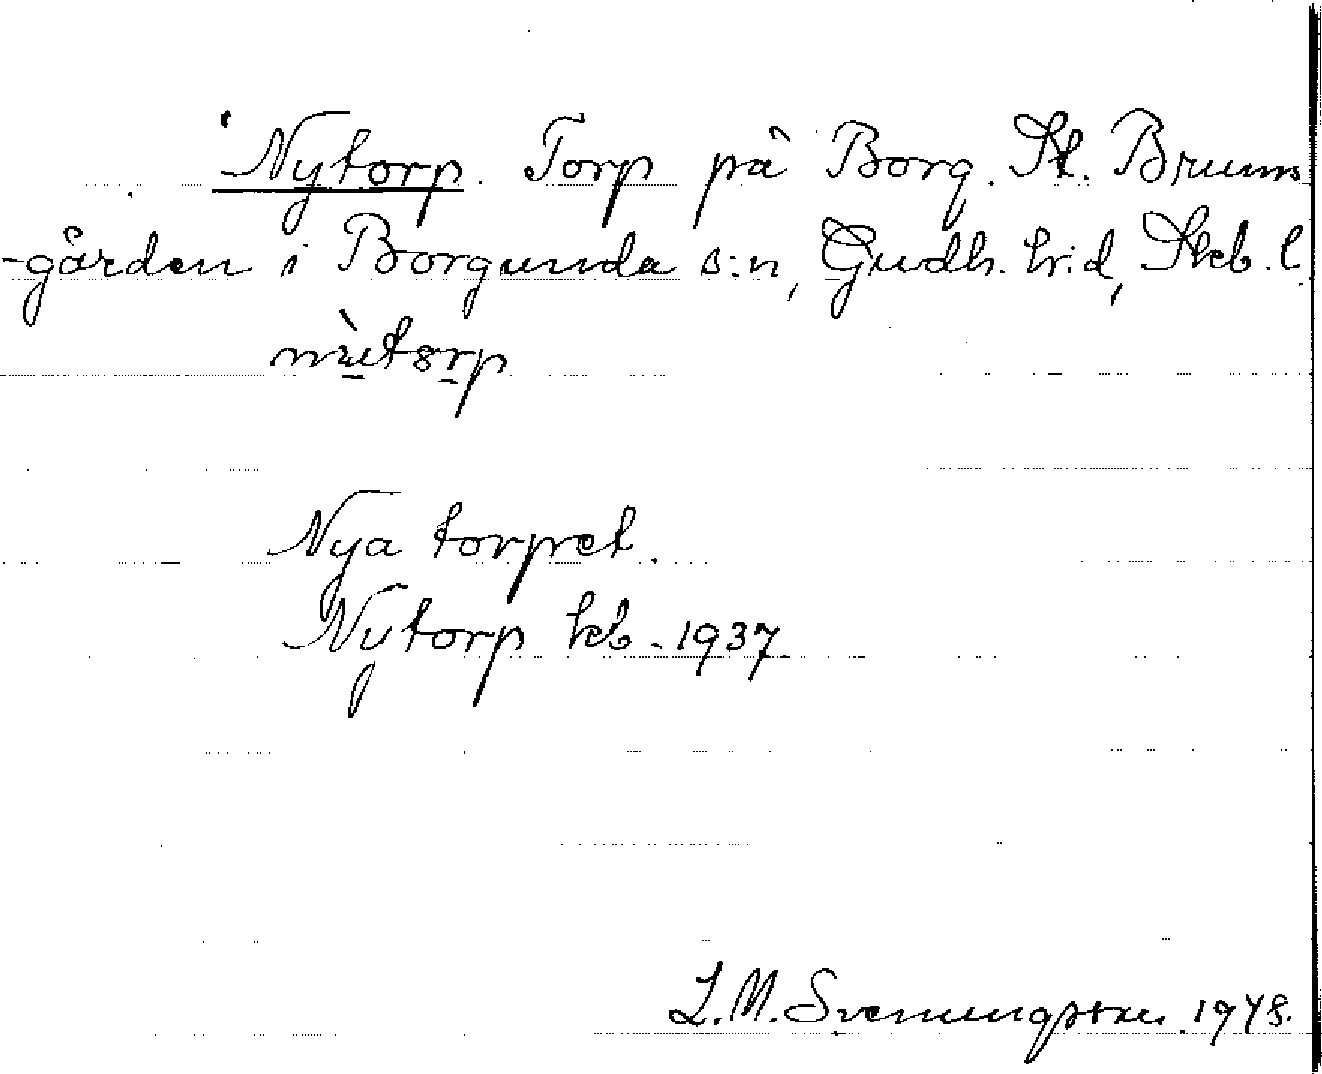 Nytorp. Torp på Borg. St. Bruns
-gården i Borgunda s:n, Gudh. hr:d, Skb. l.
Nya torpet.
Nytorp kb. 1937
L. M. Svenungsson 1948.